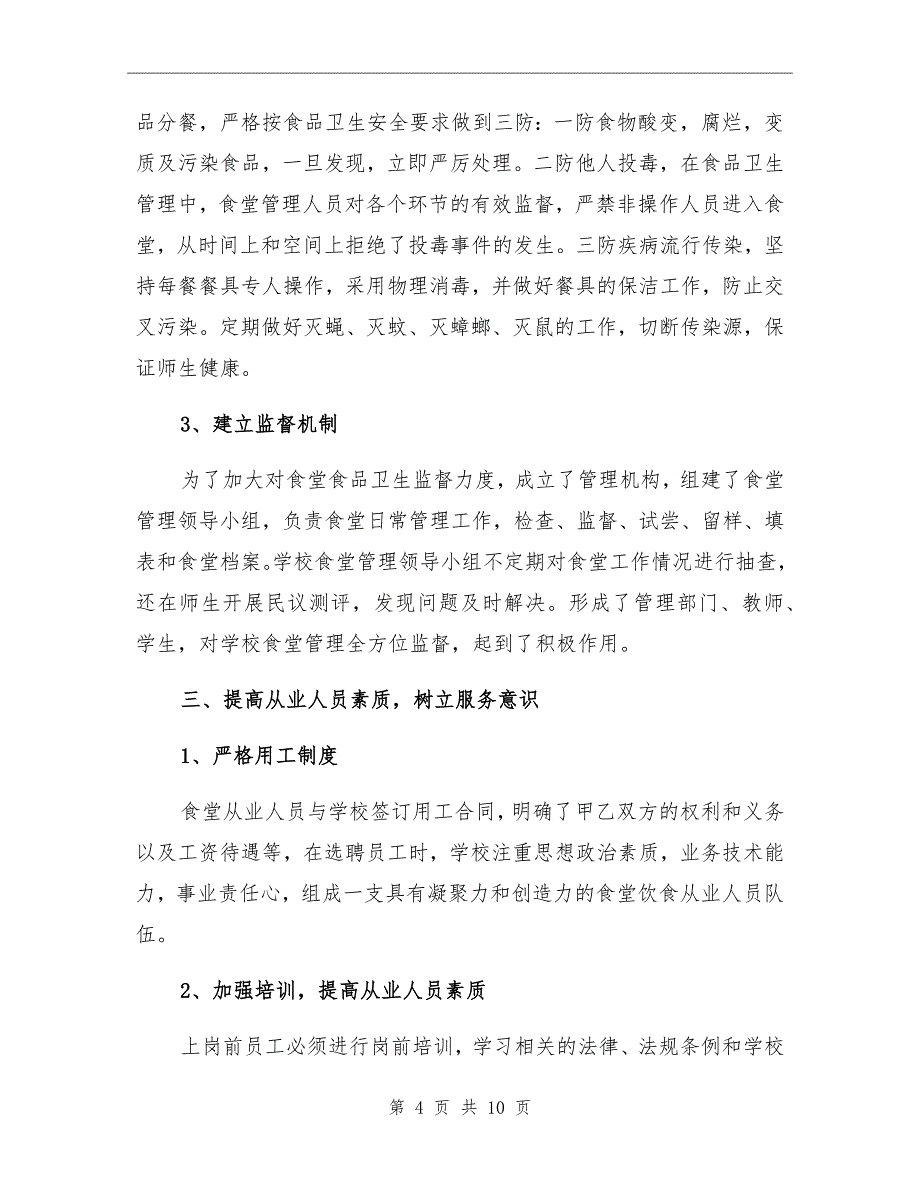 品分餐，严格按食品卫生安全要求做到三防：一防食物酸变，腐烂，变
质及污染食品，一旦发现，立即严厉处理。二防他人投毒，在食品卫生
管理中，食堂管理人员对各个环节的有效监督，严禁非操作人员进入食
堂，从时间上和空间上拒绝了投毒事件的发生。三防疾病流行传染，坚
持每餐餐具专人操作，采用物理消毒，并做好餐具的保洁工作，防止交
叉污染。定期做好灭蝇、灭蚊、灭蟑螂、灭鼠的工作，切断传染源，保
证师生健康。
3、建立监督机制
为了加大对食堂食品卫生监督力度，成立了管理机构，组建了食堂
管理领导小组，负责食堂日常管理工作，检查、监督、试尝、留样、填
表和食堂档案。学校食堂管理领导小组不定期对食堂工作情况进行抽查，
还在师生开展民议测评，发现问题及时解决。形成了管理部门、教师、
学生，对学校食堂管理全方位监督，起到了积极作用。
三、提高从业人员素质，树立服务意识
1、严格用工制度
食堂从业人员与学校签订用工合同，明确了甲乙双方的权利和义务
以及工资待遇等，在选聘员工时，学校注重思想政治素质，业务技术能
力，事业责任心，组成一支具有凝聚力和创造力的食堂饮食从业人员队
伍。
2、加强培训，提高从业人员素质
上岗前员工必须进行岗前培训，学习相关的法律、法规条例和学校
第 4 页 共 10 页